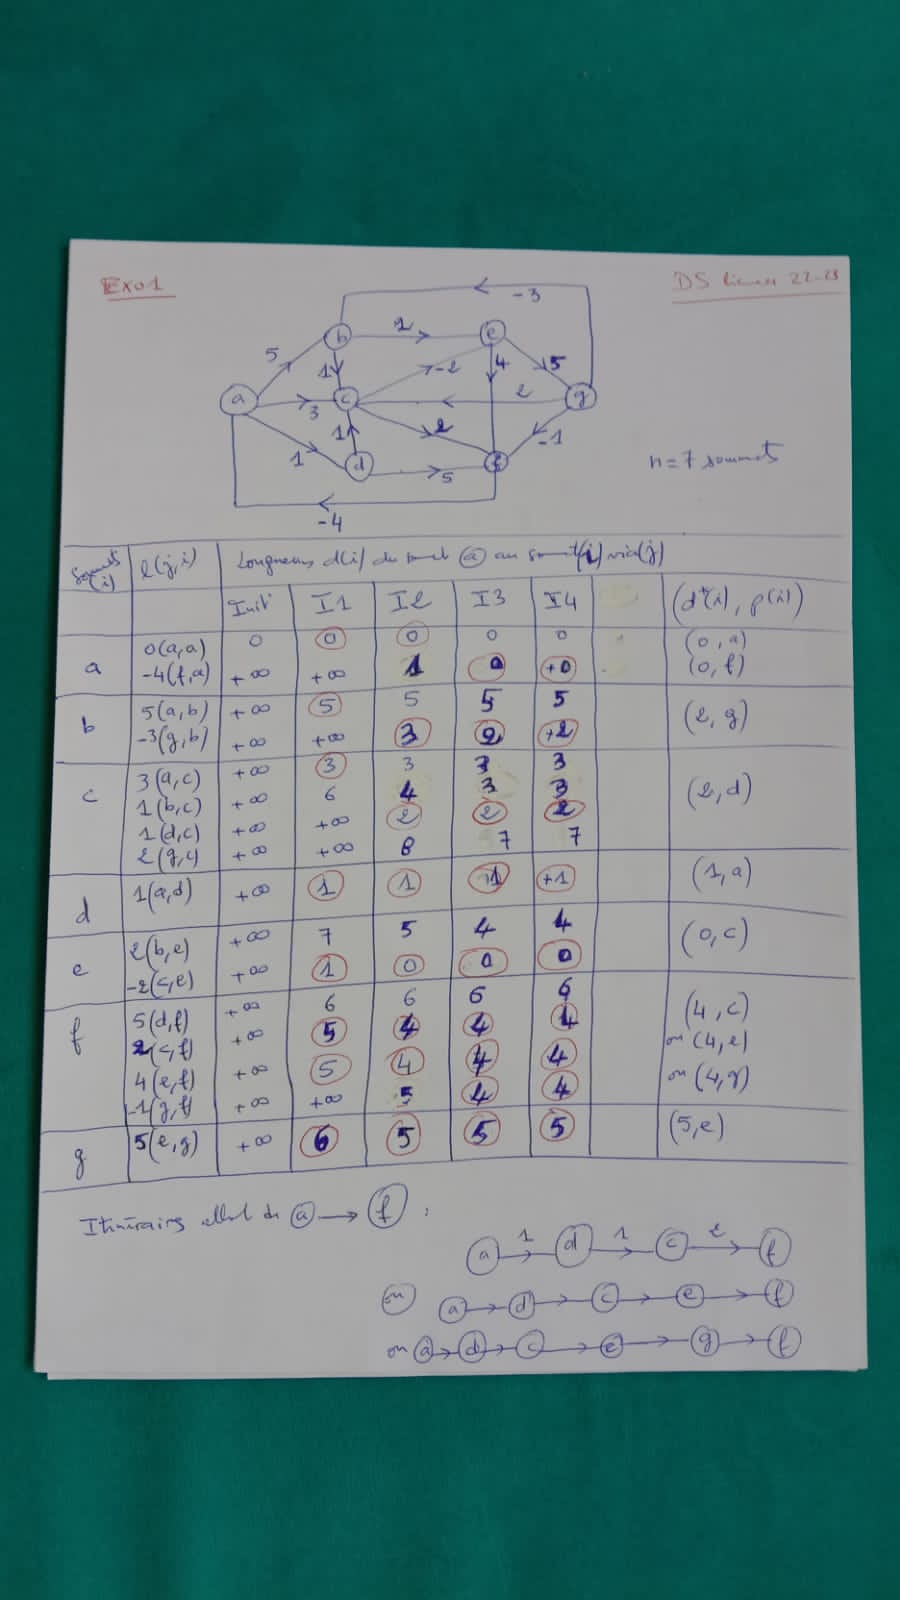 Exo1
DS Licence 22-23
-3
b 2 e
5 1 -2 4 5
a 3 c 2 g
1 1 2 -1
d 5 f
-4
n=7 sommets
Sommets (i) l(j,i) Longueurs d(i) du sommet (a) au sommet (i) via (j)
Init I1 I2 I3 I4 (d*(i), p(i))
a 0(a,a) 0 0 0 0 0 (0,a)
-4(f,a) +∞ +∞ 1 0 +0 (0,f)
b 5(a,b) +∞ 5 5 5 5 (2,g)
-3(g,b) +∞ +∞ 3 2 +2
c 3(a,c) +∞ 3 3 3 3 (2,d)
1(b,c) +∞ 6 4 3 3
1(d,c) +∞ +∞ 2 2 2
2(g,c) +∞ +∞ 8 7 7
d 1(a,d) +∞ 1 1 +1 +1 (1,a)
e 2(b,e) +∞ 7 5 4 4 (0,c)
-2(c,e) +∞ 1 0 0 0
f 5(d,f) +∞ 6 6 6 6 (4,c)
2(c,f) +∞ 5 4 4 4 ou (4,e)
4(e,f) +∞ 5 4 4 4 ou (4,g)
-1(g,f) +∞ +∞ 5 4 4
g 5(e,g) +∞ 6 5 5 5 (5,e)
Itinéraires allant de a → f :
a 1→ d 1→ c 2→ f
ou a → d → c → e → f
ou a → d → c → e → g → f